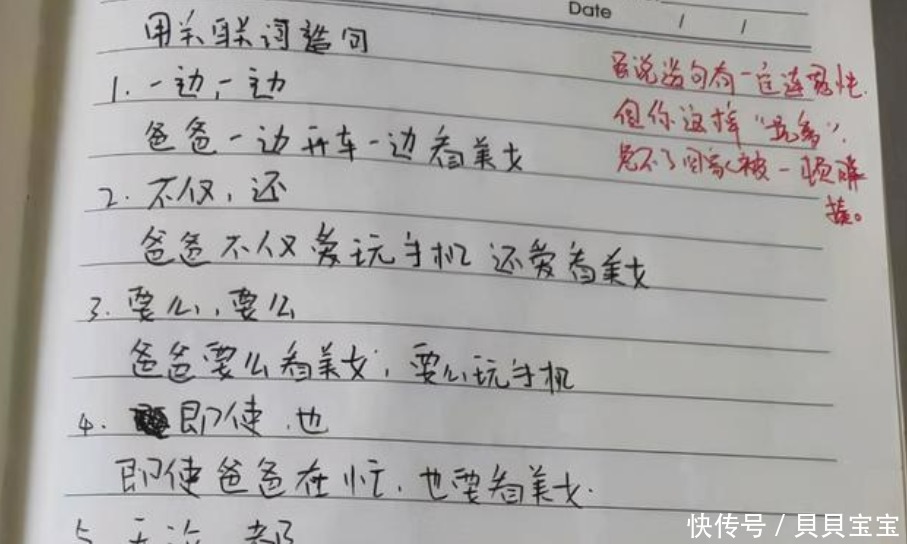 Date / /
用关联词造句
1. 一边,一边
爸爸一边开车一边看美女
2. 不仅,还
爸爸不仅爱玩手机还爱看美女
3. 要么,要么
爸爸要么看美女,要么玩手机
4. 即使 也
即使爸爸在忙,也要看美女.
5 无论 都
虽说造句有一定连贯性.
但你这样"坑爹",
免不了回家被一顿胖
揍。
快传号/貝貝宝宝